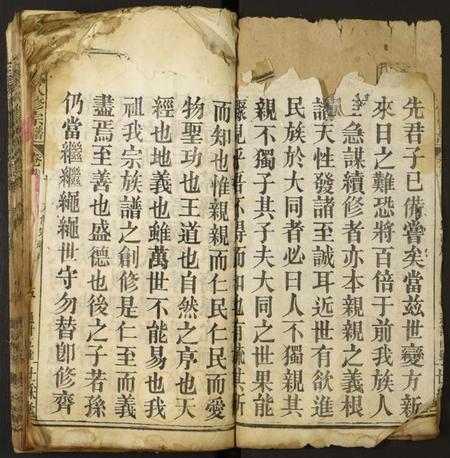 先君子已備嘗矣當茲世變方新
來日之難恐將百倍于前我族人
急謀續修者亦本親親之義根
諸天性發諸至誠耳近世有欲進
民族於大同者必曰人不獨親其
親不獨子其子夫大同之世果能
見乎吾不得而知也
而知也惟親親而仁民仁民而愛
物聖功也王道也自然之序也天
經也地義也雖萬世不能易也我
祖我宗族譜之創修是仁至而義
盡焉至善也盛德也後之子若孫
仍當繼繼繩繩世守勿替卽修齊
修宗譜